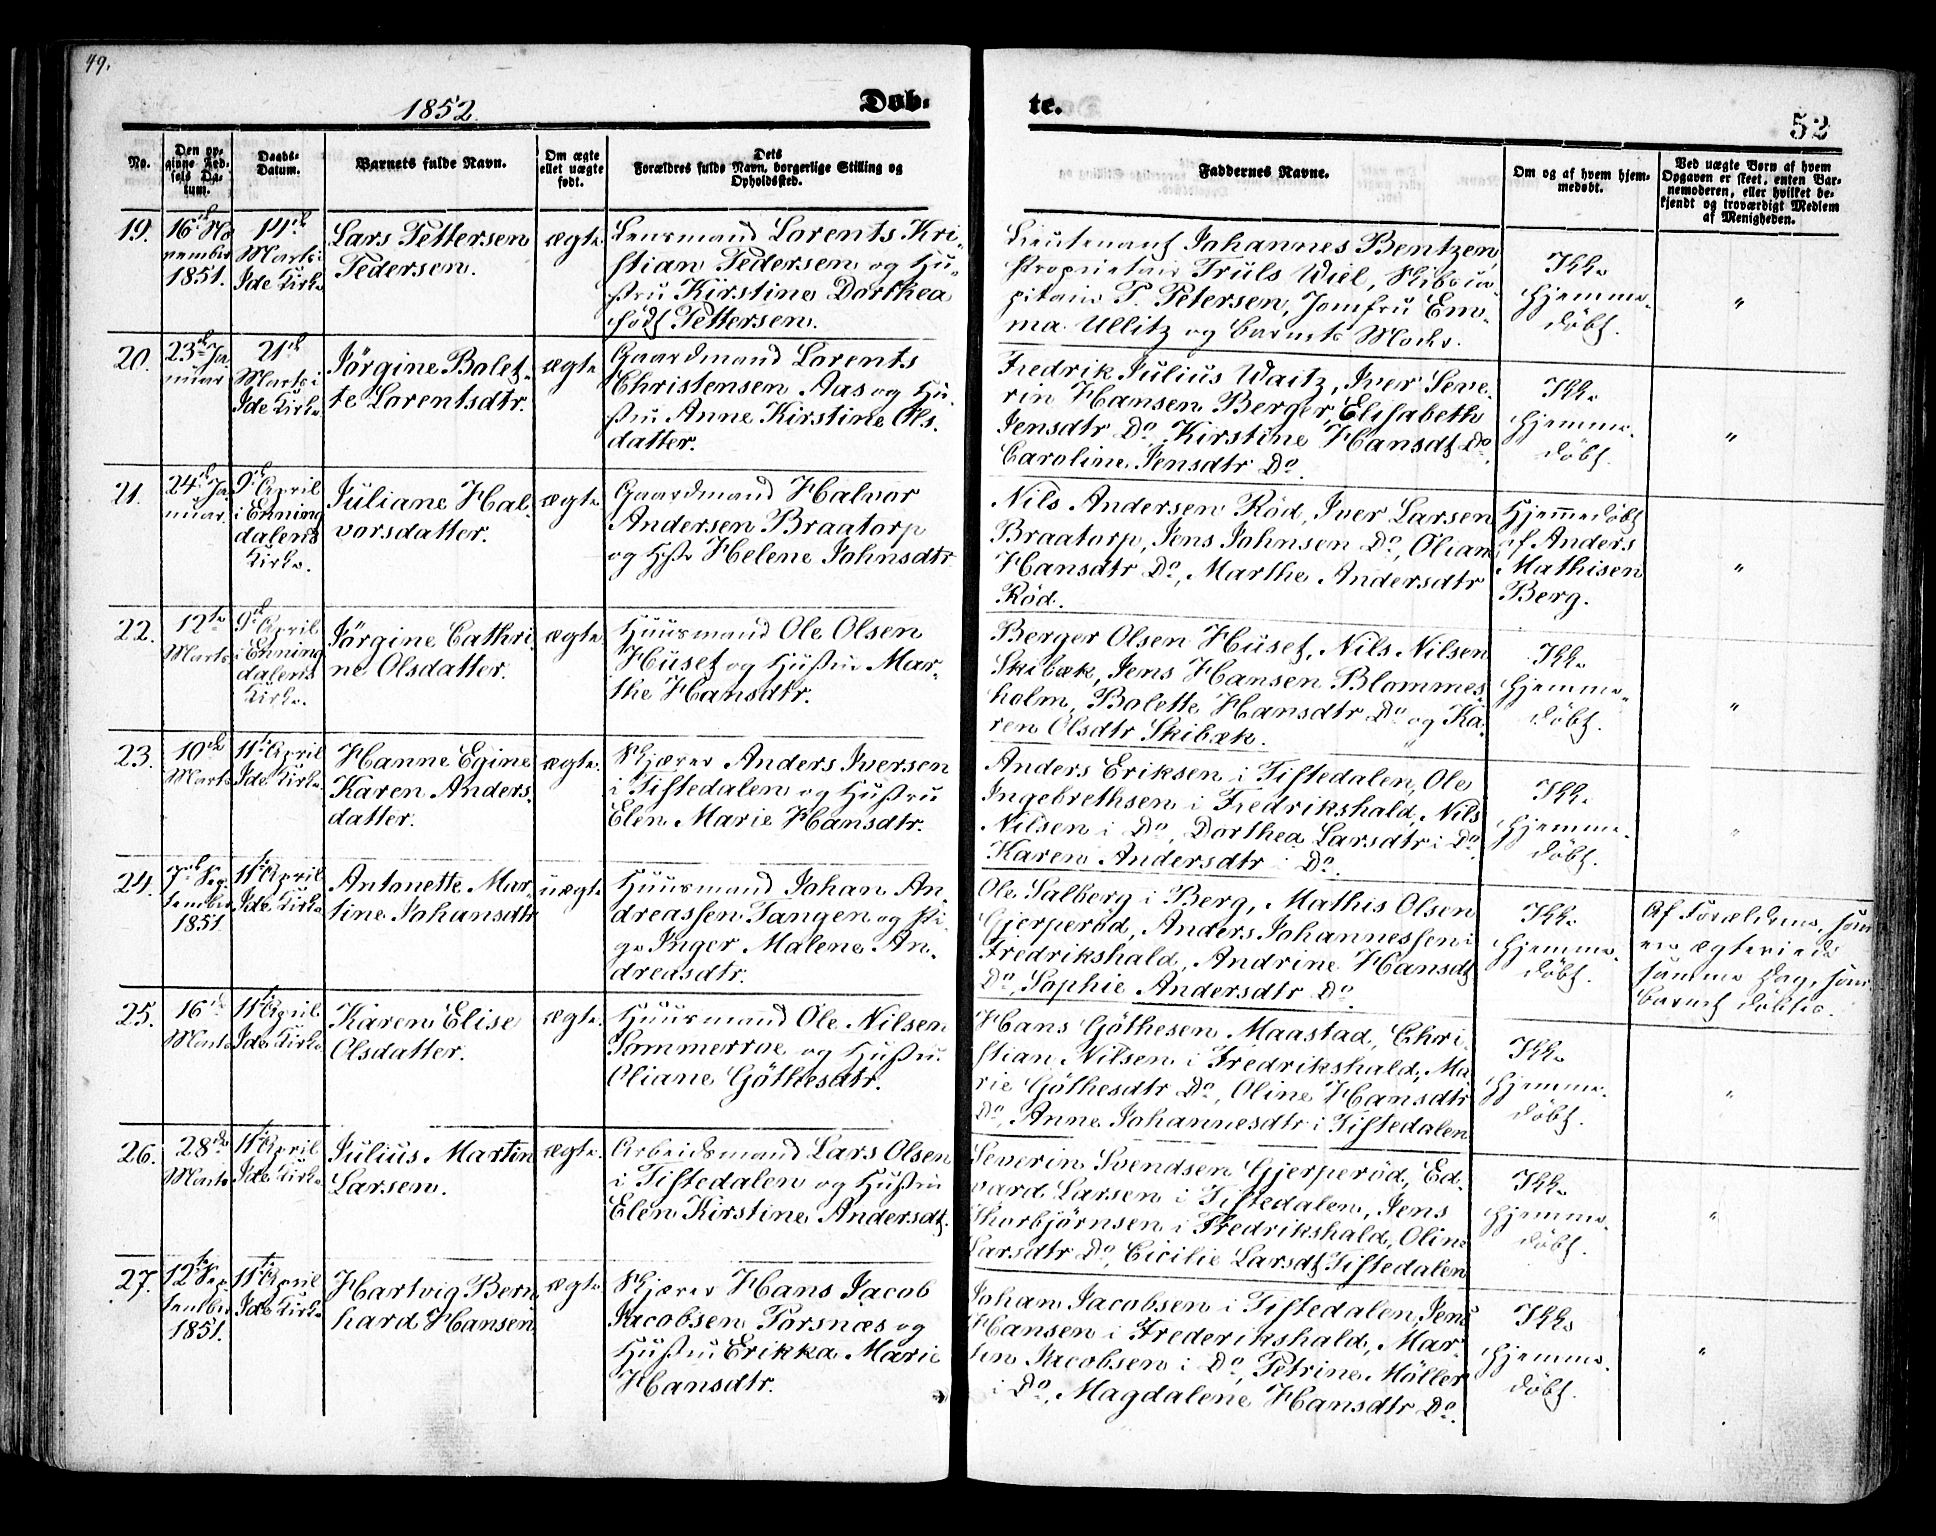 49.
1852.
Døb-
te.
52
No.
Den op-
givne Fød-
sels Da-
tum.
Daabs-
Datum.
Barnets fulde Navn.
Om ægte
ellet uægte
født.
Dets
Forældres fulde Navn, borgerlige Stilling og
Opholdssted.
Faddernes Navne.
Om og af hvem hjem-
medøbt.
Ved uægte Børn af hvem
Opgaven er skeet, enten Bar-
nemoderen, eller hvilket be-
kjendt og troværdigt Medlem
af Menigheden.
19.
16de No
vember
1851.
14de
Marts i
Ide Kirke
Lars Pettersen
Pedersen.
ægte
Lensmand Lorents Kri-
stian Pedersen og Hu-
stru Kirstine Dorthea
født Pettersen.
Lieutenant Johannes Bentzen,
Proprietair Truls Wiel, Skibsca-
pitain P. Petersen, Jomfru Em-
ma Ullitz og Barnets Moder.
Ikke
hjemme-
døbt.
"
20.
23de Ja-
nuar
21de
Marts i
Ide Kirke
Jörgine Bolet-
te Lorentsdtr.
ægte
Gaardmand Lorents
Christensen Aas og Hu-
stru Anne Kirstine Ols-
datter.
Fredrik Julius Waitz, Iver Seve-
rin Hansen Berger, Elisabeth
Jensdtr Do, Kirstine Hansdt Do,
Caroline Jensdtr Do.
Ikke
hjemme-
døbt.
"
21.
24de Ja-
nuar
9de April
i Enning
dalens
Kirke.
Juliane Hal-
vorsdatter.
ægte
Gaardmand Halvor
Andersen Braatorp
og Hst. Helene Johnsdtr
Nils Andersen Röd, Iver Larsen
Braatorp, Jens Johnsen Do, Olian
Hansdtr Do, Marthe Andersdtr
Röd.
Hjemmedøbt
af Anders
Mathisen
Berg.
"
22.
12te
Marts
9de April
i Enning
dalens
Kirke.
Jörgine Cathri-
ne Olsdatter.
ægte
Huusmand Ole Olsen
Huset og Hustru Mar-
the Hansdtr.
Berger Olsen Huset, Nils Nilsen
Skibæk, Jens Hansen Blommes-
holm, Bolette Hansdtr Do og Ka-
ren Olsdtr Skibæk.
Ikke
hjemme-
døbt.
"
23.
10de
Marts
11te April
Ide Kirke
Hanne Egine
Karen Anders-
datter.
ægte.
Skjærer Anders Iversen
i Tistedalen og Hustru
Elen Marie Hansdtr.
Anders Eriksen i Tistedalen, Ole
Ingebrethsen i Fredrikshald, Nils
Nilsen i Do, Dorthea Larsdtr i Do
Karen Andersdtr i Do.
Ikke
hjemme-
døbt.
"
24.
7de Sep-
tember
1851.
11te April
Ide Kirke
Antonette Mar-
tine Johansdtr
uægte
Huusmand Johan An-
dreassen Tangen og Pi-
ge Inger Malene An-
dreasdtr.
Ole Salberg i Berg, Mathis Olsen
Gjerperöd, Anders Johannessen i
Fredrikshald, Andrine Hansdt
Do, Sophie Andersdtr Do.
Ikke
hjemme-
døbt.
Af Forældrene, som
ere ægteviede
samme Dag, som
Barnet døbtes.
25.
16de
Marts
11te April
Ide Kirke
Karen Elise
Olsdatter.
ægte.
Huusmand Ole Nilsen
Sommerroe og Hustru
Oliane Göthesdtr.
Hans Göthesen Maastad, Chri-
stian Nilsen i Fredrikshald, Ma-
rie Göthesdtr Do, Oline Hansdtr
Do, Anne Johannesdtr i Tistedalen
Ikke
hjemme-
døbt.
"
26.
28de
Marts
11te April
Ide Kirke
Julius Martin
Larsen.
ægte.
Arbeidsmand Lars Olsen
i Tistedalen og Hustru
Elen Kirstine Andersdt.
Severin Svendsen Gjerperöd, Ed-
vard Larsen i Tistedalen, Jens
Thorbjörnsen i Fredrikshald, Oline
Larsdtr Do, Cicilie Larsdt Tistedalen
Ikke
hjemme-
døbt.
"
27.
12te Sep-
tember
1851.
11te April
Ide Kirke
Hartvig Bern
hard Hansen
ægte.
Skjærer Hans Jacob
Jacobsen Torsnæs og
Hustru Erikka Marie
Hansdtr.
Johan Jacobsen i Tistedalen, Jens
Hansen i Frederikshald, Mar-
tin Jacobsen i Do, Petrine Möller
i Do, Magdalene Hansdtr Do.
Ikke
hjemme-
døbt.
"